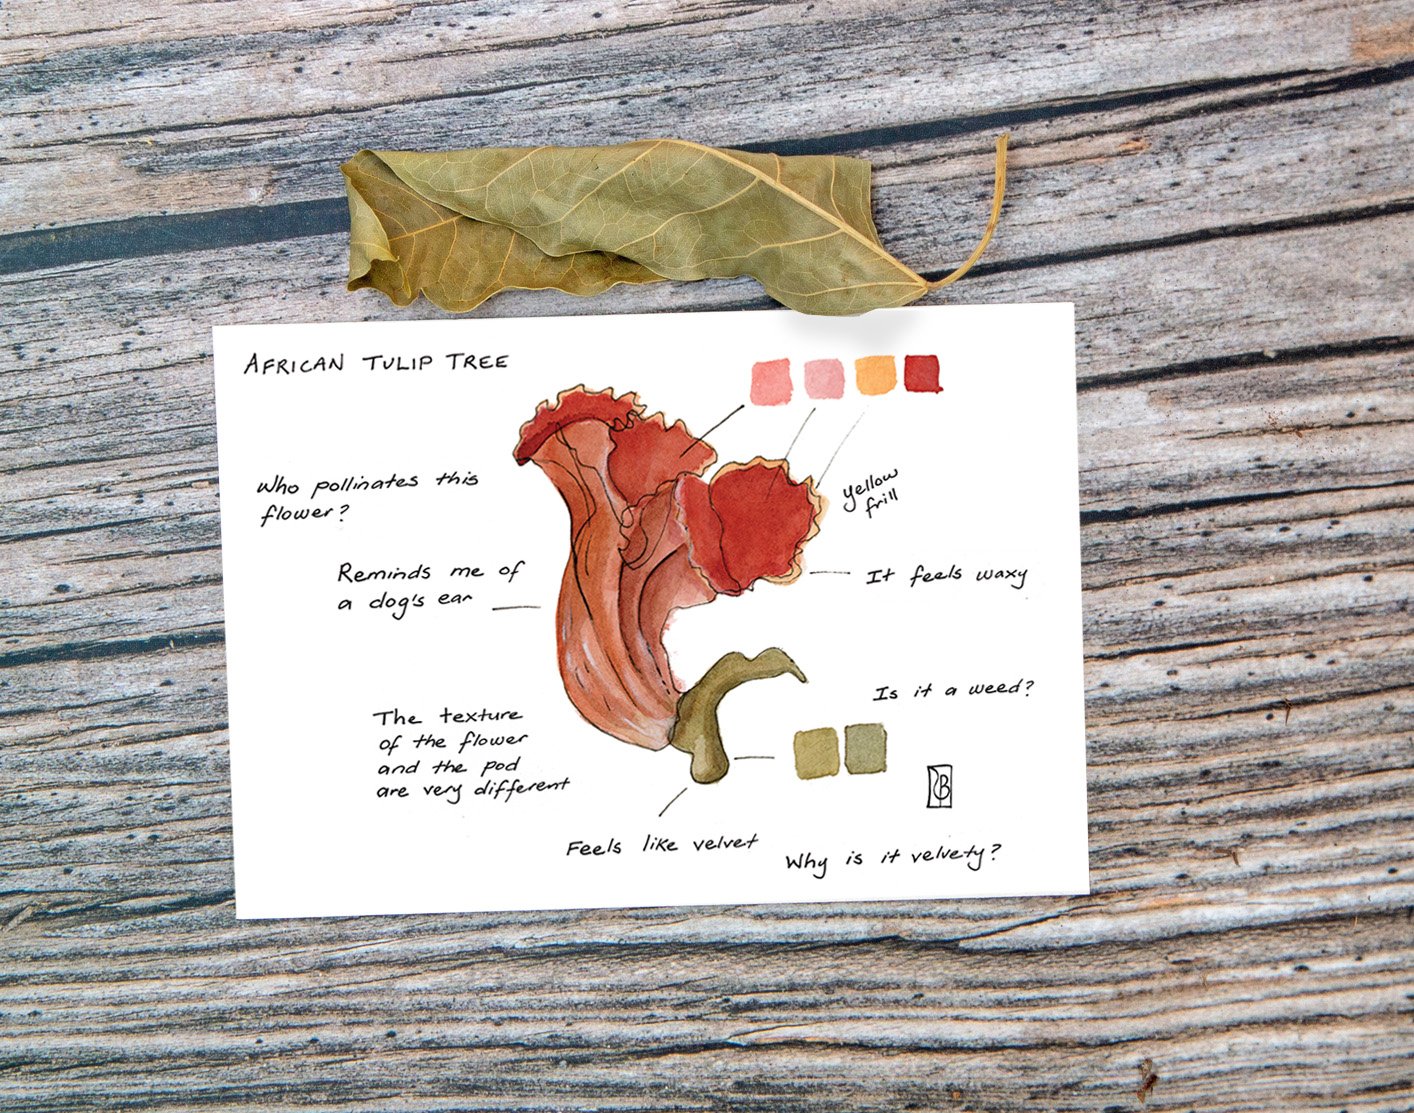 AFRICAN TULIP TREE
Who pollinates this
flower?
yellow
frill
Reminds me of
a dog's ear
It feels waxy
Is it a weed?
The texture
of the flower
and the pod
are very different
Feels like velvet
Why is it velvety?